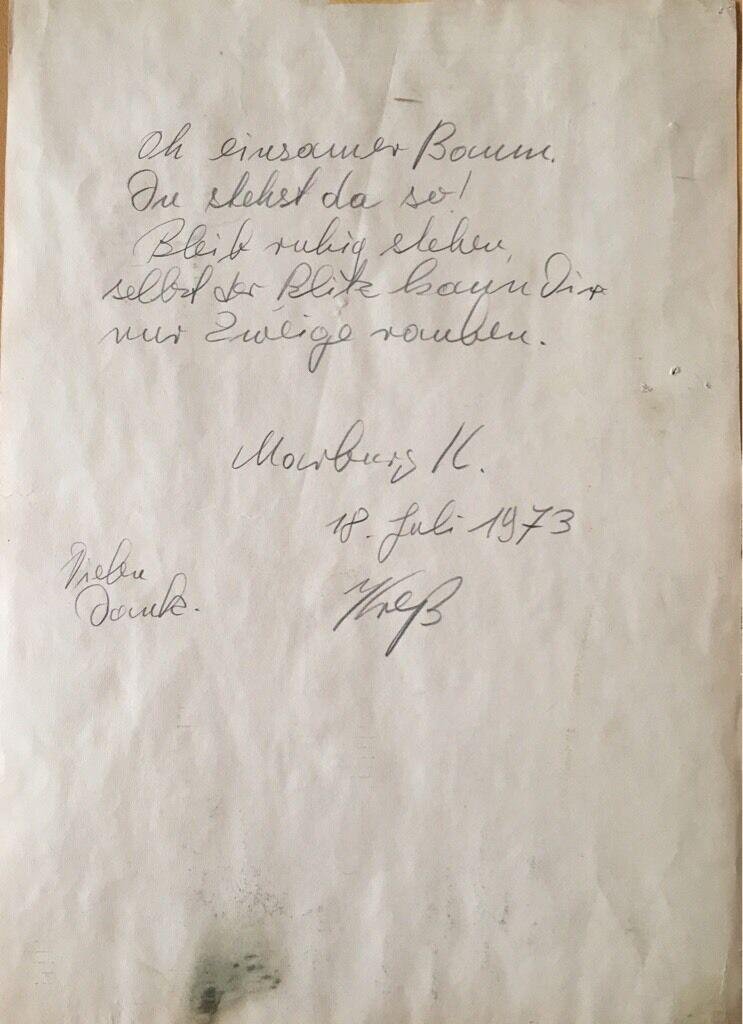 Oh einsamer Baum.
Du stehst da so!
Bleib ruhig stehen,
selbst der Blitz kann Dir
nur Zweige rauben.
Marburg K.
18. Juli 1973
Vielen
Dank.
Kreß